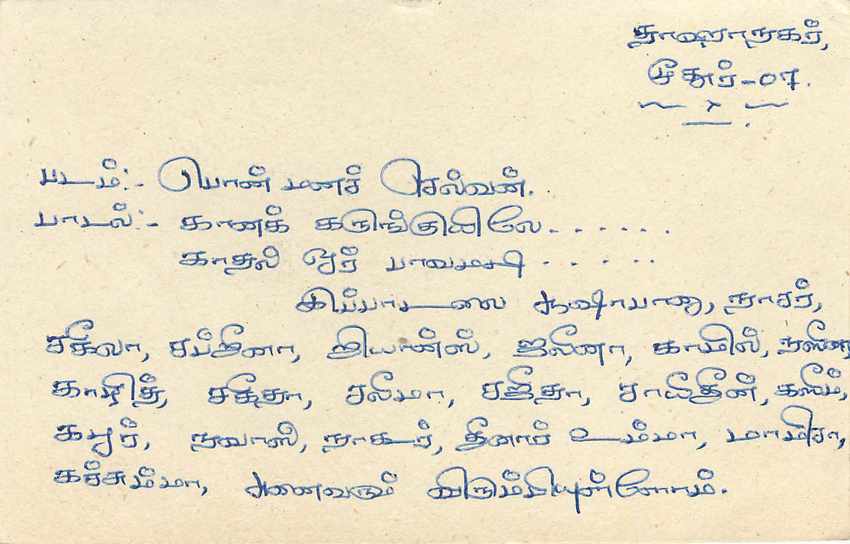 தாஹாநகர்,
மூதூர்-07.
படம்:- பொன் மனச் செல்வன்.
பாடல்:- கானக் கருங்குயிலே.......
காதல் ஓர் பாவமடி ......
இப்பாடலை ஆஷாபானு, நாசர்,
சகீலா, சப்ரீனா, றியான்ஸ், ஜலீனா, காமில், நஸீரா,
காழித், சகீதா, சலீமா, சஜீதா, சாயிதீன், கலீம்,
கபூர், நவாஸ், நாகூர், தீனார் உம்மா, மாமிசா,
கச்சும்மா, அனைவரும் விரும்பியுள்ளோம்.